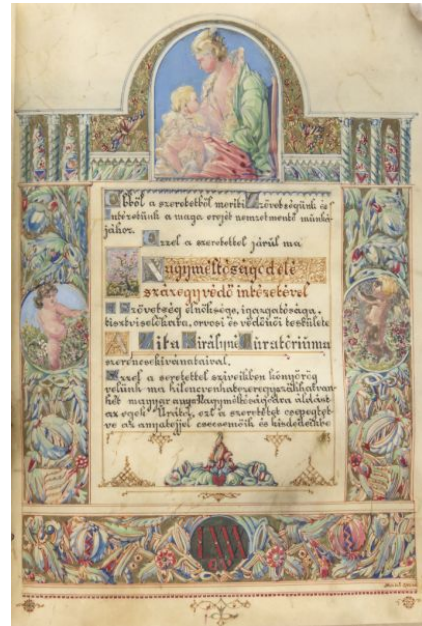 Ebből a szeretetből meríti Szövetségünk és
Intézetünk a maga erejét nemzetmentő munká-
jához.
Ezzel a szeretettel járul ma
Nagyméltóságod elé
százegy védő intézetével
A Szövetség elnöksége, igazgatósága,
tisztviselőkara, orvosi és védőnői testülete
A Zita Királyné Kuratóriuma
szerencsekívánataival.
Ezzel a seretettel szíveikben könyörög
velünk ma kilencvenhatezeregyszázhatvan-
hét magyar anya Nagyméltóságodra áldást
az egek Urától, ezt a szeretetet csepegtet-
ve az anyatejjel csecsemőik és kisdedeikbe